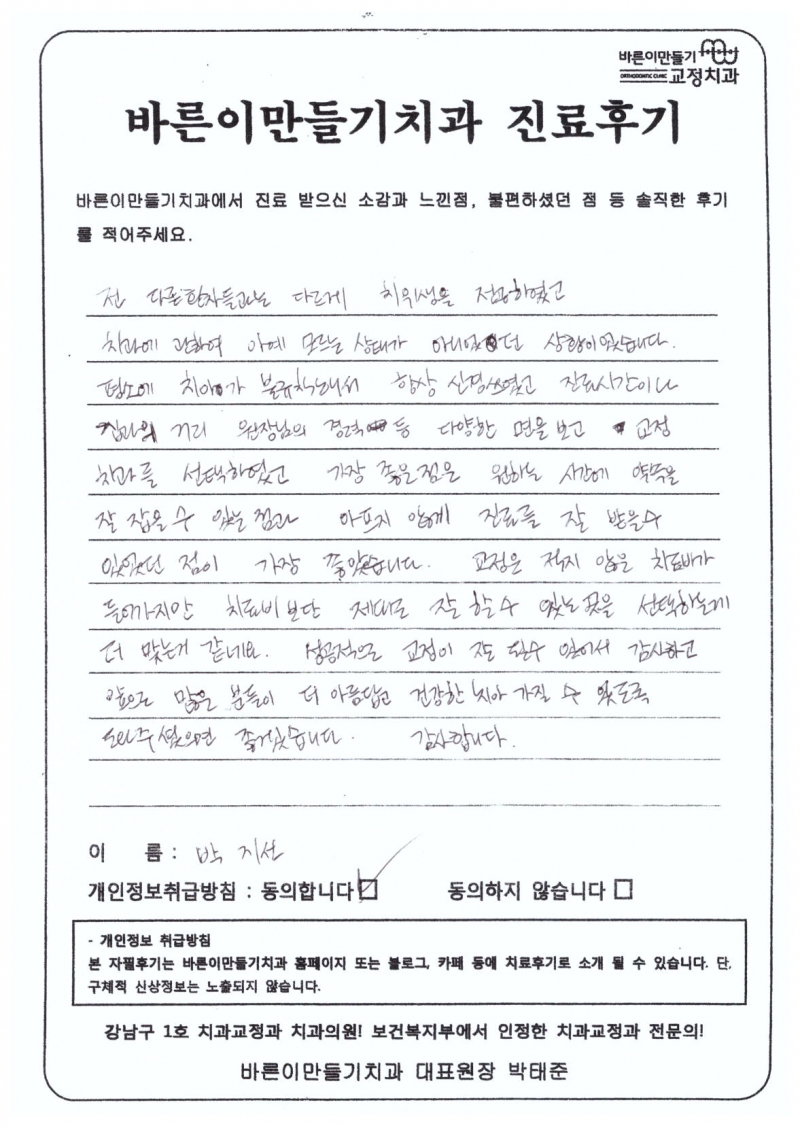 바른이만들기
ORTHODONTIC CLINIC 교정치과
바른이만들기치과 진료후기
바른이만들기치과에서 진료 받으신 소감과 느낀점, 불편하셨던 점 등 솔직한 후기
를 적어주세요.
전 다른환자들과는 다르게 치위생을 전공하였고
치과에 관하여 아예 모르는 상태가 아니었던 상황이었습니다.
평소에 치아가 불규칙해서 항상 신경쓰였고 진료시간이나
집과의 거리 원장님의 경력 등 다양한 면을 보고 교정
치과를 선택하였고 가장 좋은점은 원하는 시간에 약속을
잘 잡을 수 있는 점과 아프지 않게 진료를 잘 받을수
있었던 점이 가장 좋았습니다. 교정은 적지 않은 치료비가
들어가지만 치료비보단 제대로 잘 할 수 있는 곳을 선택하는게
더 맞는거 같네요. 성공적으로 교정이 잘 될수 있어서 감사하고
앞으로 많은 분들이 더 아름답고 건강한 치아 가질 수 있도록
도와주셨으면 좋겠습니다. 감사합니다.
이 름 : 박지선
개인정보취급방침 : 동의합니다 동의하지 않습니다
- 개인정보 취급방침
본 자필후기는 바른이만들기치과 홈페이지 또는 블로그, 카페 등에 치료후기로 소개 될 수 있습니다. 단,
구체적 신상정보는 노출되지 않습니다.
강남구 1호 치과교정과 치과의원! 보건복지부에서 인정한 치과교정과 전문의!
바른이만들기치과 대표원장 박태준